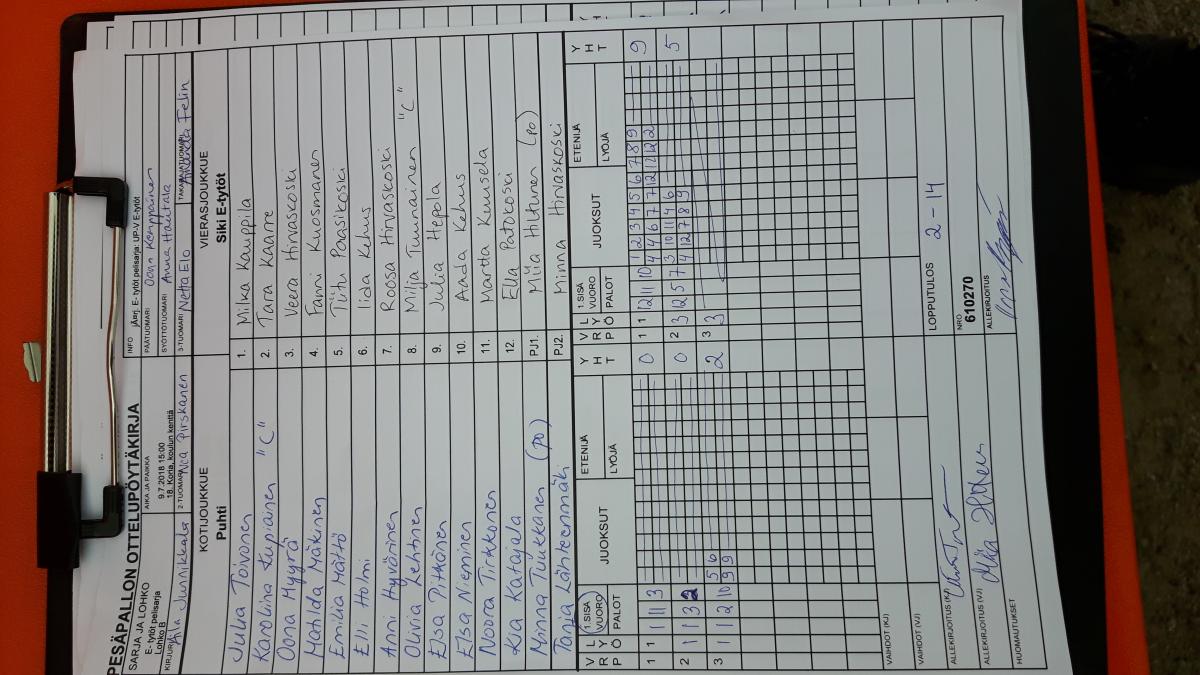 PESÄPALLON OTTELUPÖYTÄKIRJA
INFO järj. E- tytöt pelisarja: UP-V E-tytöt
SARJA JA LOHKO
E- tytöt pelisarja
Lohko B
AIKA JA PAIKKA
9.7.2018 15:00
18. Koria, koulun kenttä
PÄÄTUOMARI Kemppainen
SYÖTTÖTUOMARI Anna Hautala
KIRJURI Junnikkala
2-TUOMARI Noa Pirskanen
3-TUOMARI Netta Elo
TAKARAJATUOMARI Amanda Felin
KOTIJOUKKUE
Puhti
VIERASJOUKKUE
Siki E-tytöt
Julia Toivonen 1. Milka Kauppila
Karoliina Kupiainen "C" 2. Tara Kaarre
Oona Myyrä 3. Veera Hirvaskoski
Matilda Mäkinen 4. Fanni Kuosmanen
Emilia Mättö 5. Tiitu Paasikoski
Elli Holmi 6. Iida Kehus
Anni Hyvärinen 7. Roosa Hirvaskoski
Olivia Lehtinen 8. Milja Tunnainen "C"
Elsa Pitkänen 9. Julia Hepola
Elsa Nieminen 10. Aada Kehus
Noora Tirkkonen 11. Martta Kuusela
Kia Katajala 12. Ella Patokoski
Minna Tujukkanen (po) PJ1. Miia Hiltunen (po)
Tanja Lähteenmäki PJ2. Minna Hirvaskoski
V R P L Y Ö 1.SISÄ VUORO PALOT JUOKSUT ETENIJÄ LYÖJÄ Y H T V R P L Y Ö 1.SISÄ VUORO PALOT JUOKSUT ETENIJÄ LYÖJÄ Y H T
1 1 1 1 3 0 1 1 12 11 10 1 2 3 4 5 6 7 8 9 9
4 4 6 7 7 12 12 12 12
2 1 1 3 2 0 2 3 12 5 7 3 10 11 4 6 5
4 12 7 8 9
3 1 1 2 10 5 6 2 3 3
9 9
VAIHDOT (KJ)
VAIHDOT (VJ)
LOPPUTULOS 2 - 14
ALLEKIRJOITUS (KJ)
NRO
610270
ALLEKIRJOITUS (VJ)
ALLEKIRJOITUS
HUOMAUTUKSET